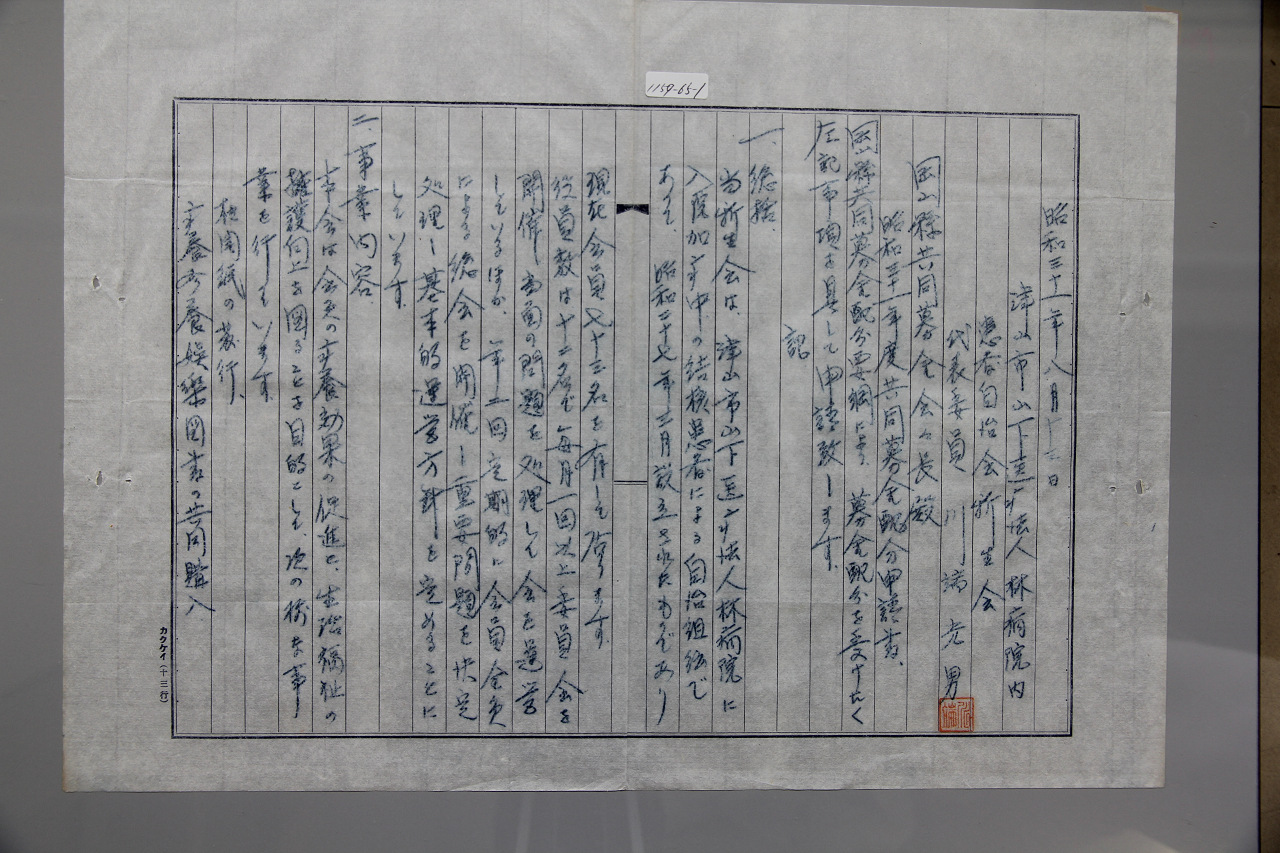 1159-65-1
昭和三十一年八月十三日
津山市山下医療法人林病院内
患者自治会新生会
代表委員 川端 光男
岡山縣共同募金会々長殿
昭和三十一年度共同募金配分申請書、
岡山縣共同募金配分要綱により、募金配分を受けたく
左記事項を具して申請致します。
記
一、総括、
当新生会は、津山市山下医療法人林病院に
入院加療中の結核患者による自治組織で
あって、昭和二十七年三月設立されたものであり
現在会員七十三名を有して居ります。
役員数は十二名で毎月一回以上委員会を
開催当面の問題を処理して会を運営
しているほか、年二回定期的に会員全員
による総会を開催し重要問題を決定
処理し基本的運営方針を定めることに
しています。
二、事業内容
本会は会員の療養効果の促進と、生活福祉の
擁護向上を図ることを目的として、次の様な事
業を行っています。
機関紙の発行、
療養娯楽図書の共同購入
カクケイ(十三行)